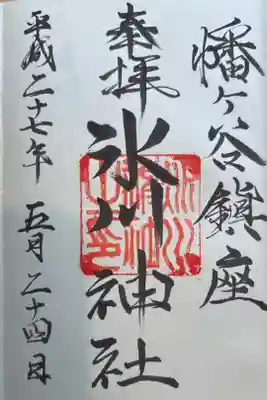 幡ヶ谷鎮座
奉拝
氷川神社
平成二十七年 五月二十四日